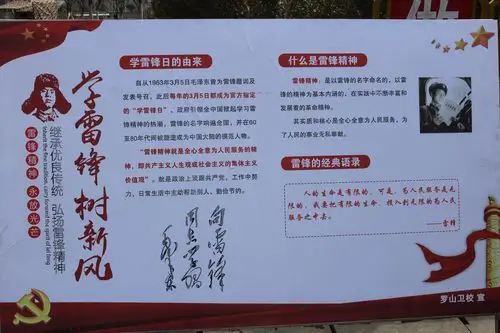 学雷锋树新风
继承优良传统 弘扬雷锋精神
雷锋精神 永放光芒
学雷锋日的由来
自从1963年3月5日毛泽东曾为雷锋题词及
发表号召，此后每年的3月5日都成为官方指定
的“学雷锋日”。政府引领全中国掀起学习雷
锋精神的热潮，雷锋的名字响遍全国，并在60
至80年代间被塑造成为中国大陆的模范人物。
“雷锋精神就是全心全意为人民服务的精
神，即共产主义人生观或社会主义的集体主义
价值观”，就是政治上说跟共产党、工作中努
力、日常生活中主动帮助别人、勤俭节约。
向雷锋
同志学习
毛泽东
什么是雷锋精神
雷锋精神，是以雷锋的名字命名的，以雷
锋的精神为基本内涵的、在实践中不断丰富和
发展着的革命精神。
其实质和核心是全心全意为人民服务，为
了人民的事业无私奉献。
雷锋的经典语录
人的生命是有限的，可是，为人民服务是无
限的，我要把有限的生命，投入到无限的为人民
服务之中去。
——雷锋
罗山卫校 宣